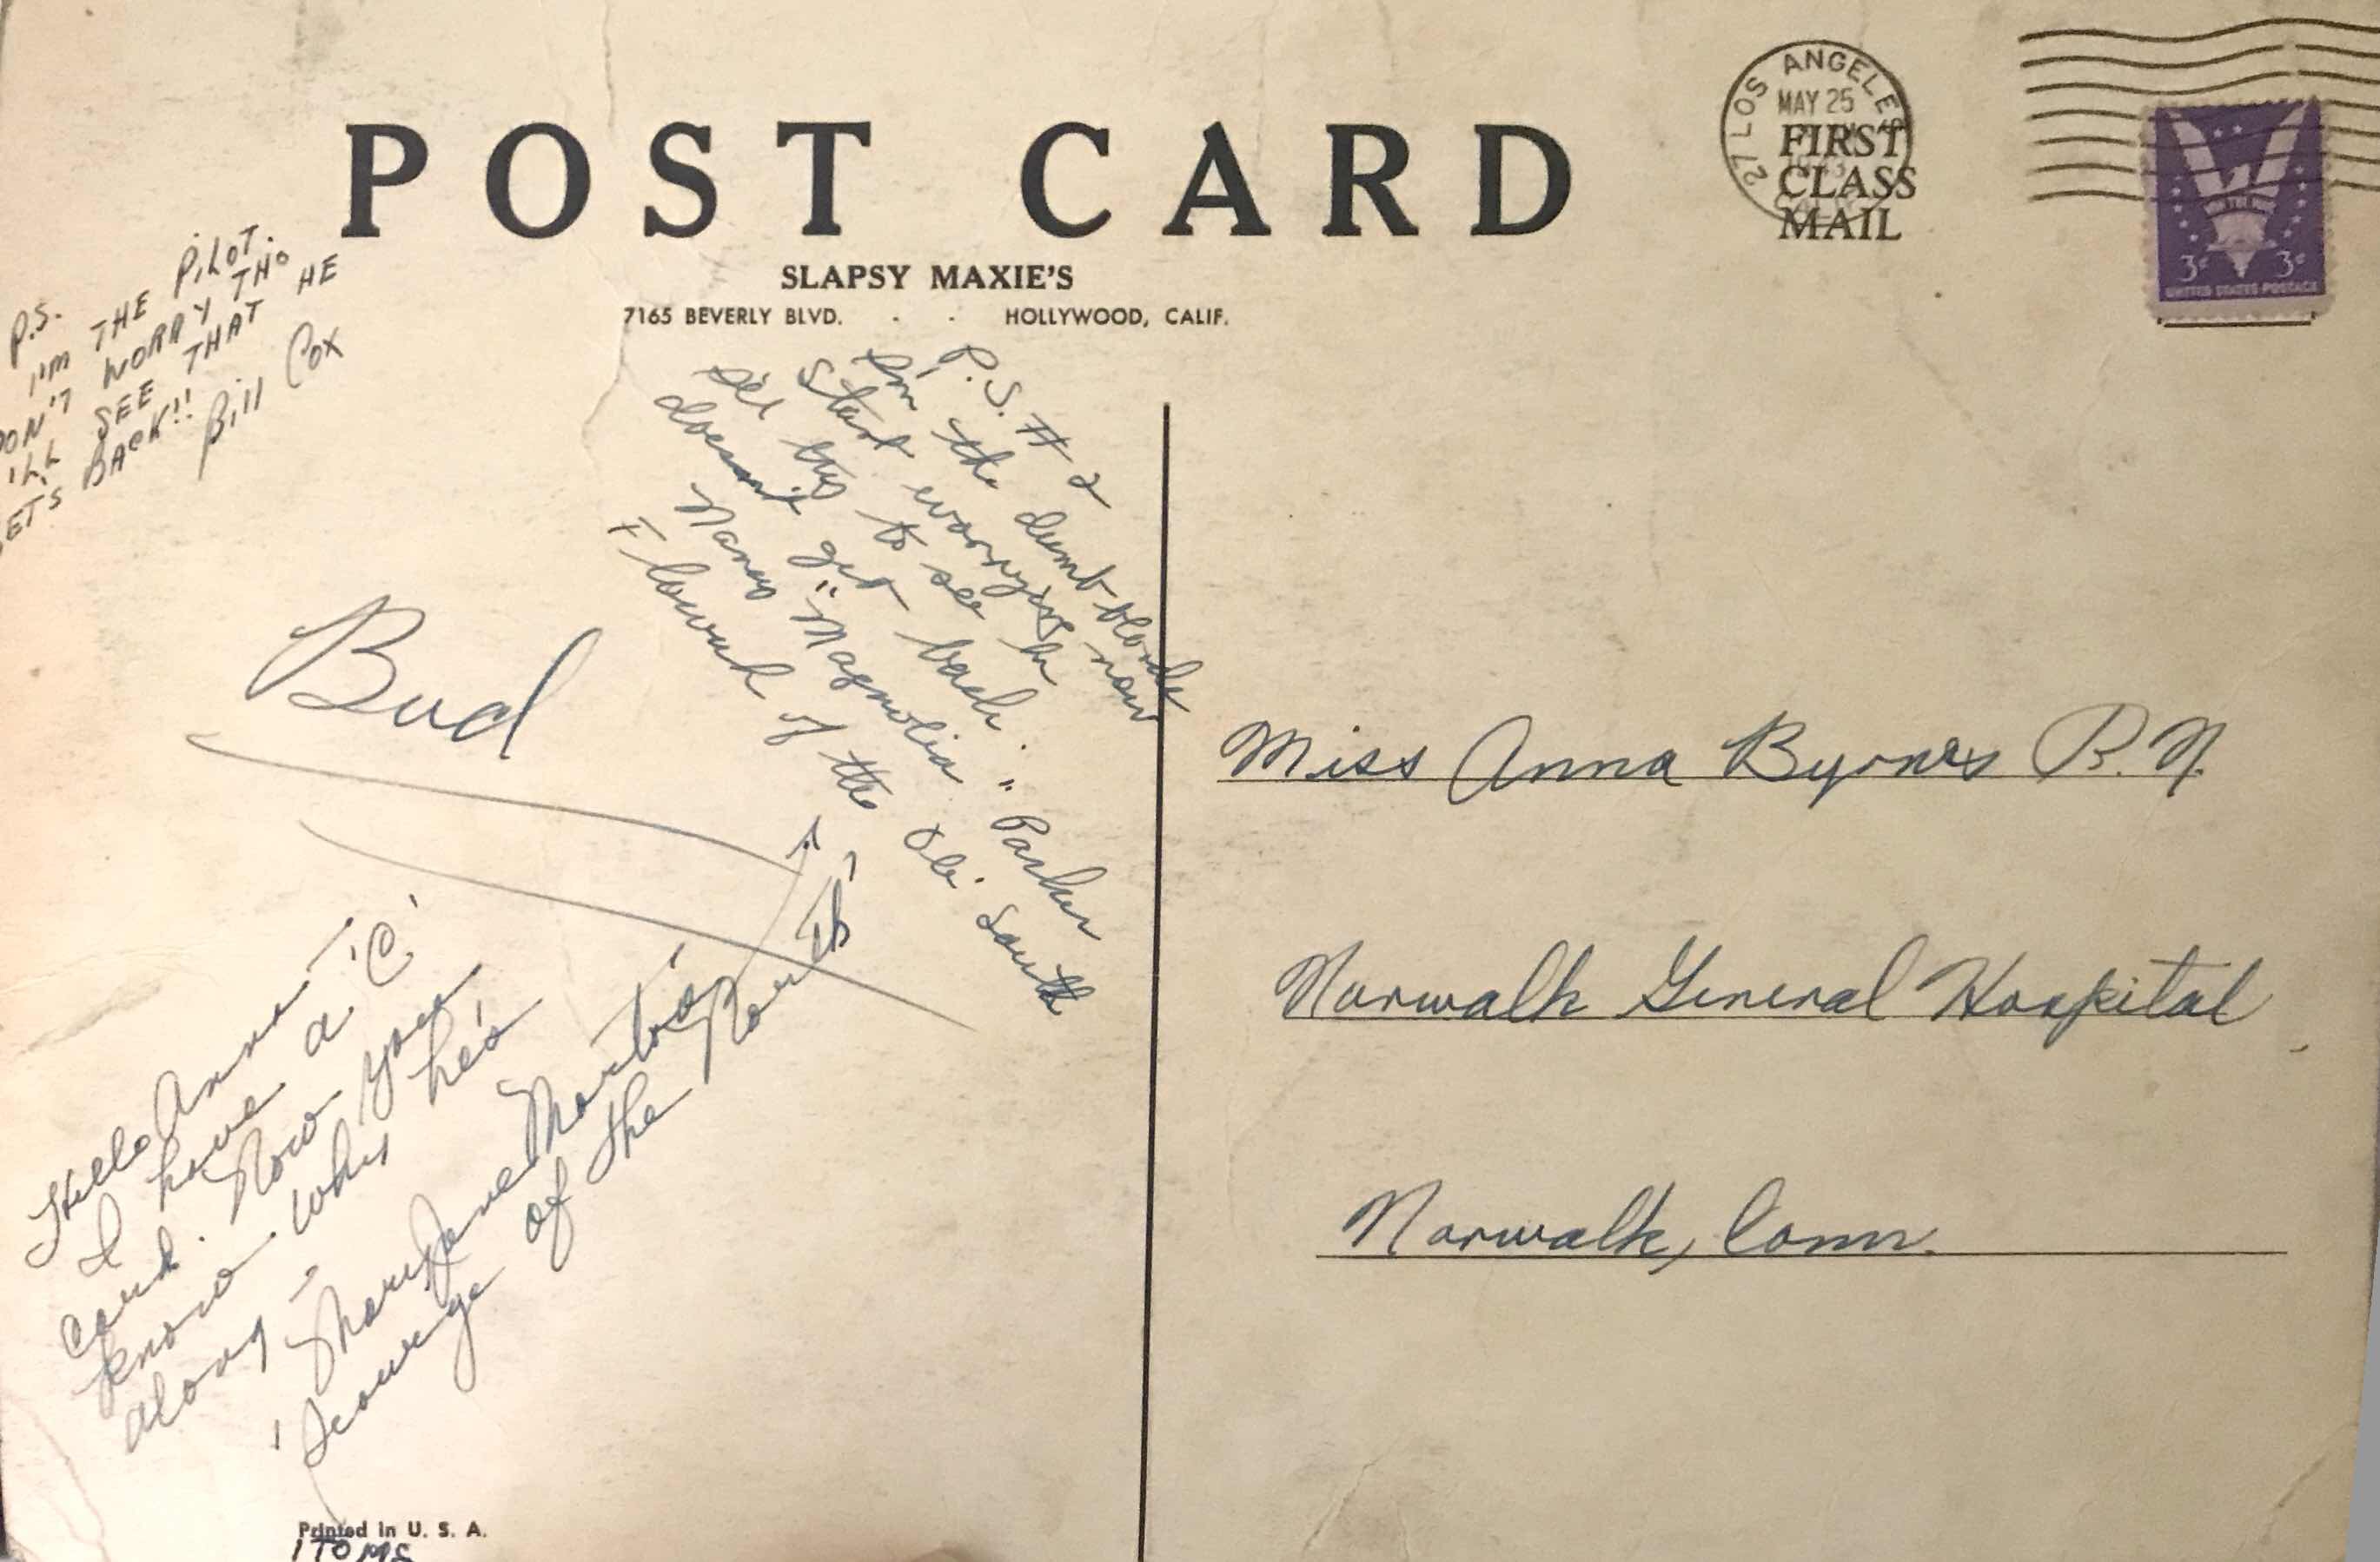 POST CARD
SLAPSY MAXIE'S
7165 BEVERLY BLVD. - - HOLLYWOOD, CALIF.
27 LOS ANGELES
MAY 25
FIRST
CLASS
MAIL
WIN THE WAR
3¢ 3¢
UNITED STATES POSTAGE
P.S.
I'M THE PILOT.
DON'T WORRY THO
I'LL SEE THAT HE
GETS BACK!!
Bill Cox
P.S. # 2
I'm the dumb blonde
Start worrying now
See try to see he
doesn't get back.
Nancy "Magnolia" Parker
Flowah of the Ole South
Bud
Hello Anne -
I have a 'C'
card. Now you
know why he's
along -
Mary Jane Martin
'Scourge of the North'
Miss Anna Byrnes R.N.
Norwalk General Hospital
Norwalk, Conn.
Printed in U. S. A.